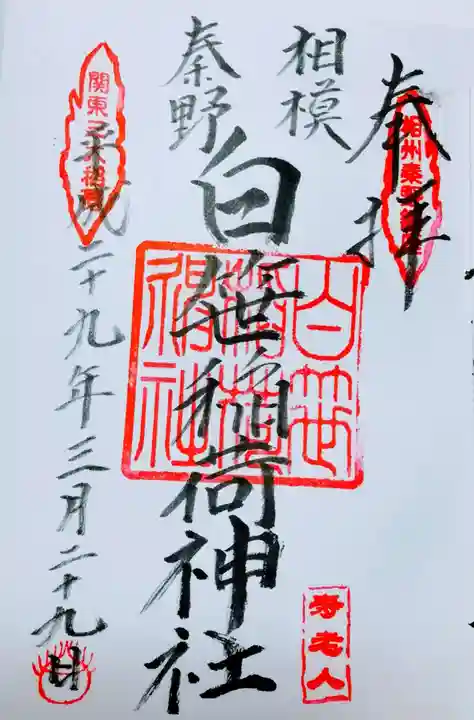 奉拝
相模
秦野
白笹稲荷神社
平成二十九年三月二十九日
関東三大稲荷
白笹稲荷神社
寿老人